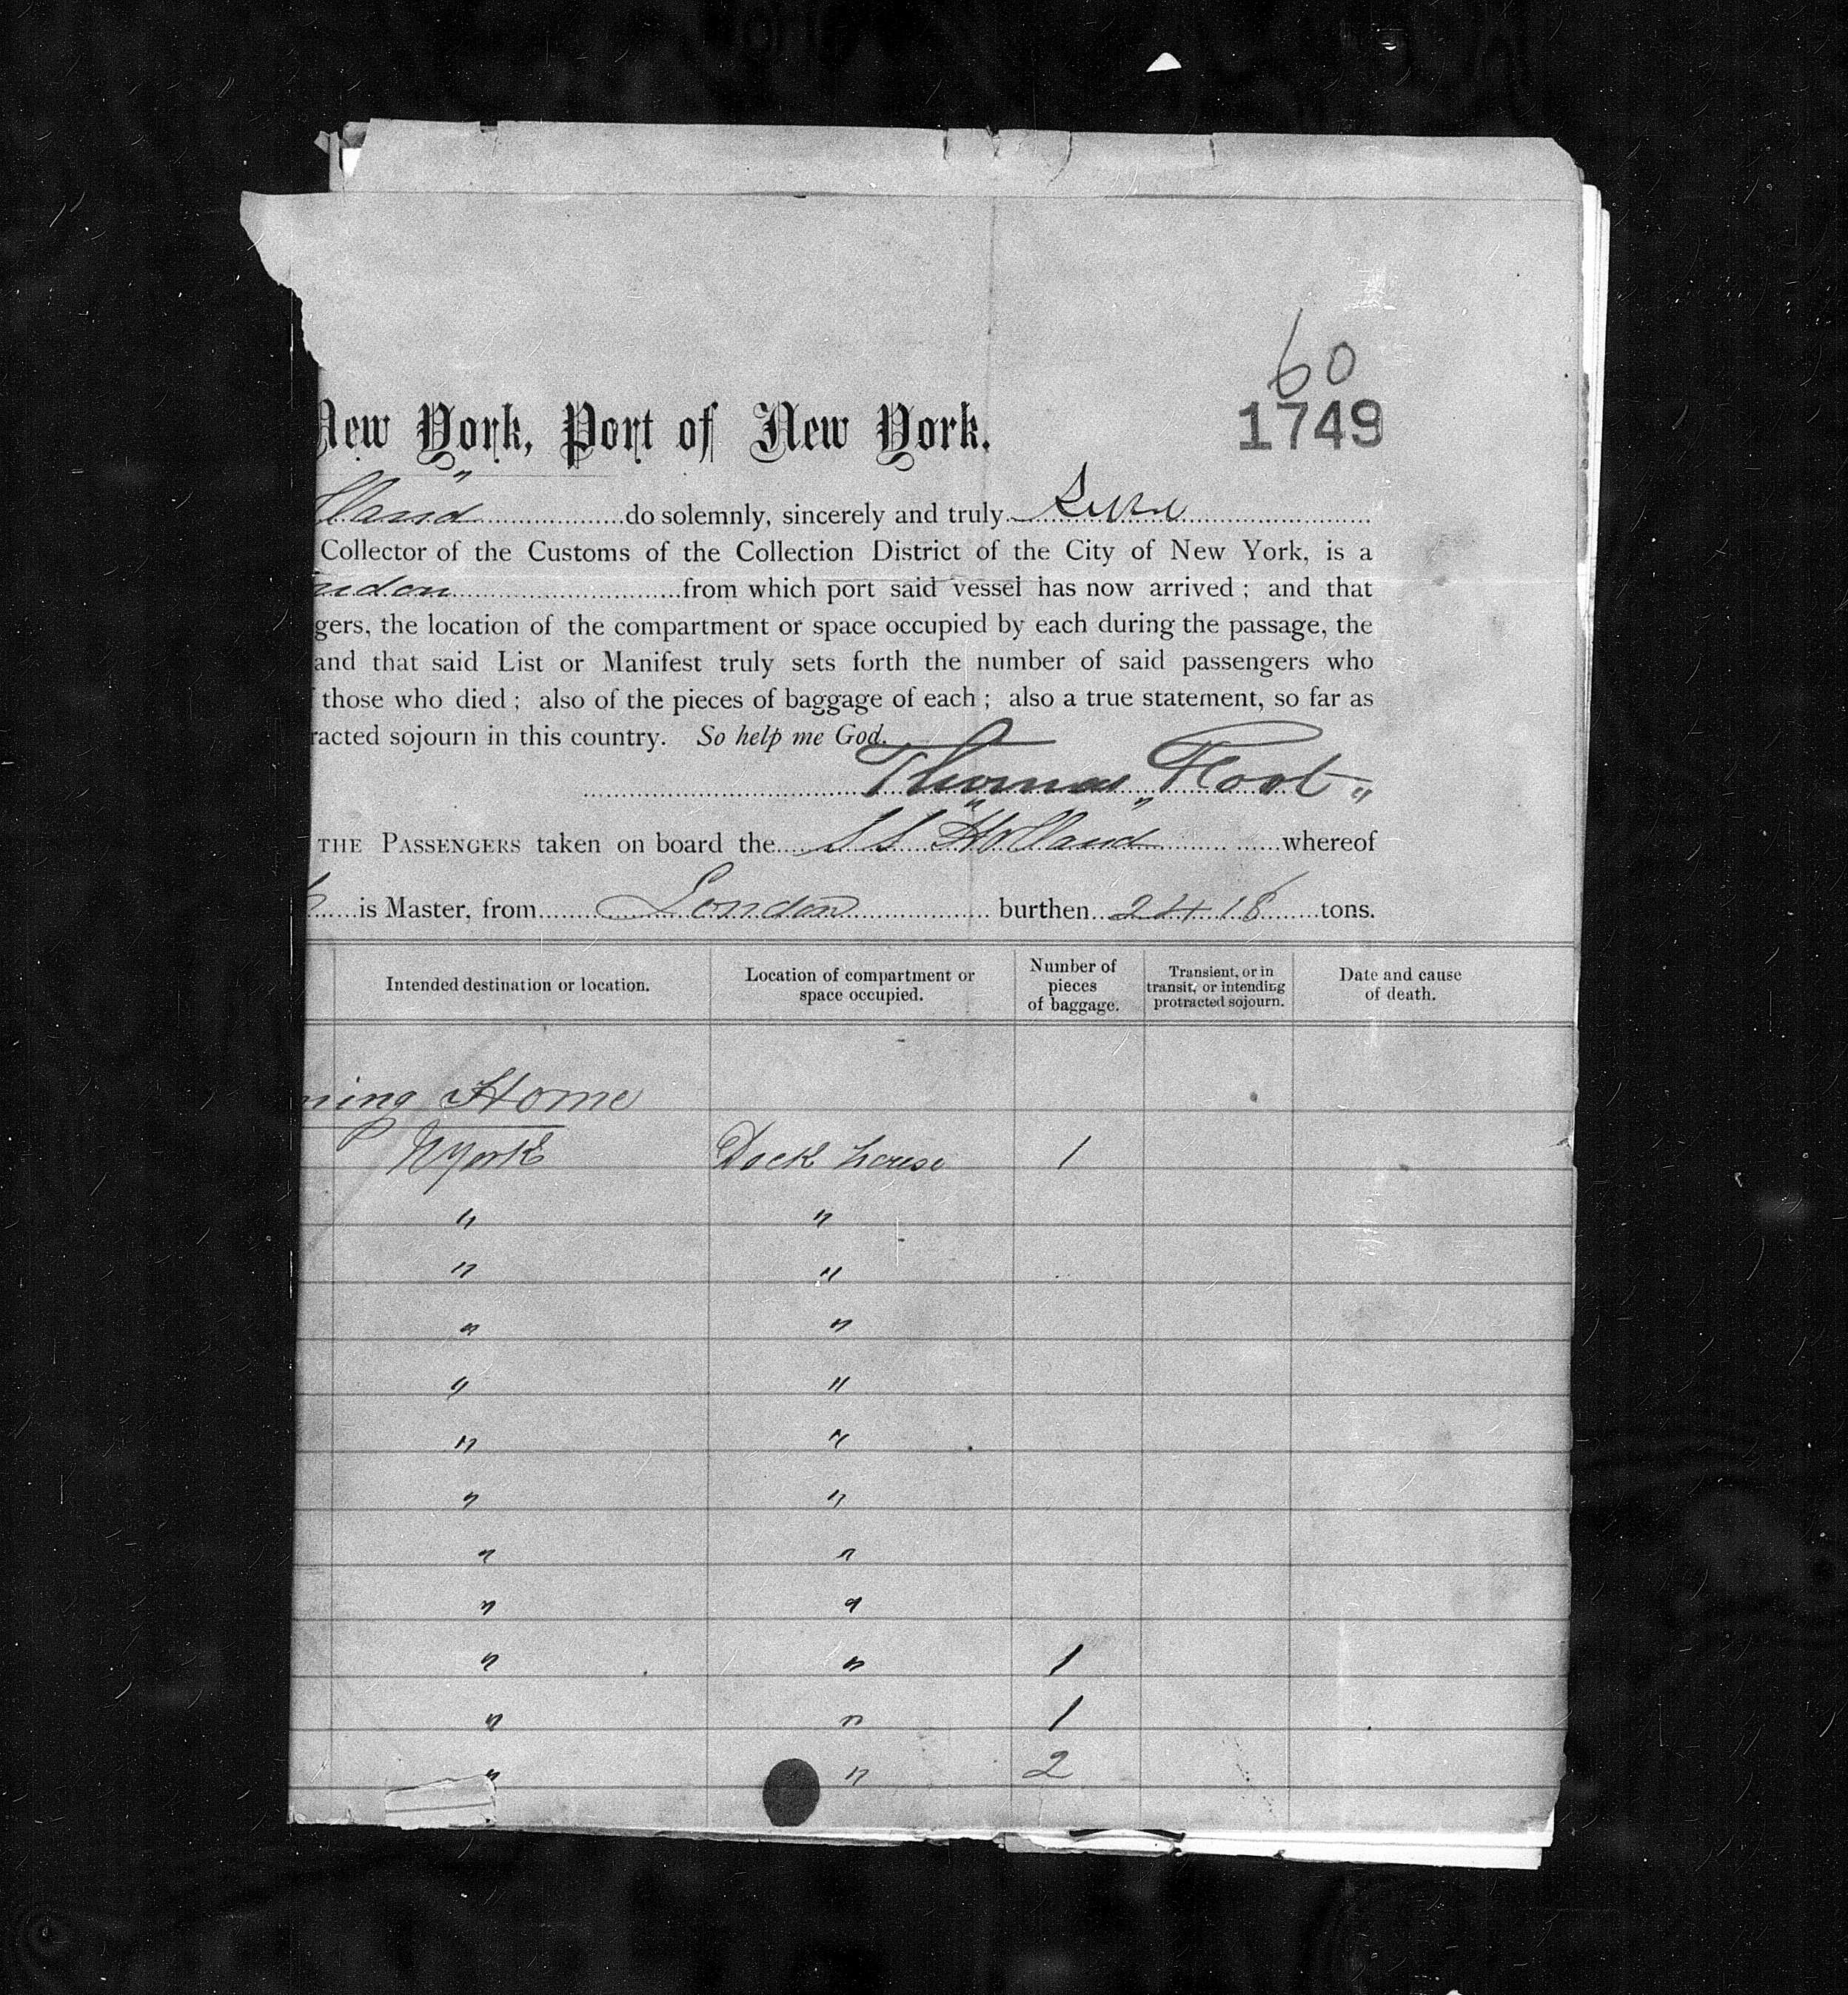 60
1749
New York, Port of New York.
lland" do solemnly, sincerely and truly
Collector of the Customs of the Collection District of the City of New York, is a
ndon from which port said vessel has now arrived ; and that
gers, the location of the compartment or space occupied by each during the passage, the
and that said List or Manifest truly sets forth the number of said passengers who
those who died ; also of the pieces of baggage of each ; also a true statement, so far as
racted sojourn in this country. So help me God.
Thomas Foot
THE PASSENGERS taken on board the SS "Holland" whereof
is Master, from London burthen 2418 tons.
Intended destination or location. Location of compartment or space occupied. Number of pieces of baggage. Transient, or in transit, or intending protracted sojourn. Date and cause of death.
ning Home
NYork Dock house 1
" "
" "
" "
" "
" "
" "
" "
" "
" " 1
" " 1
" " 2